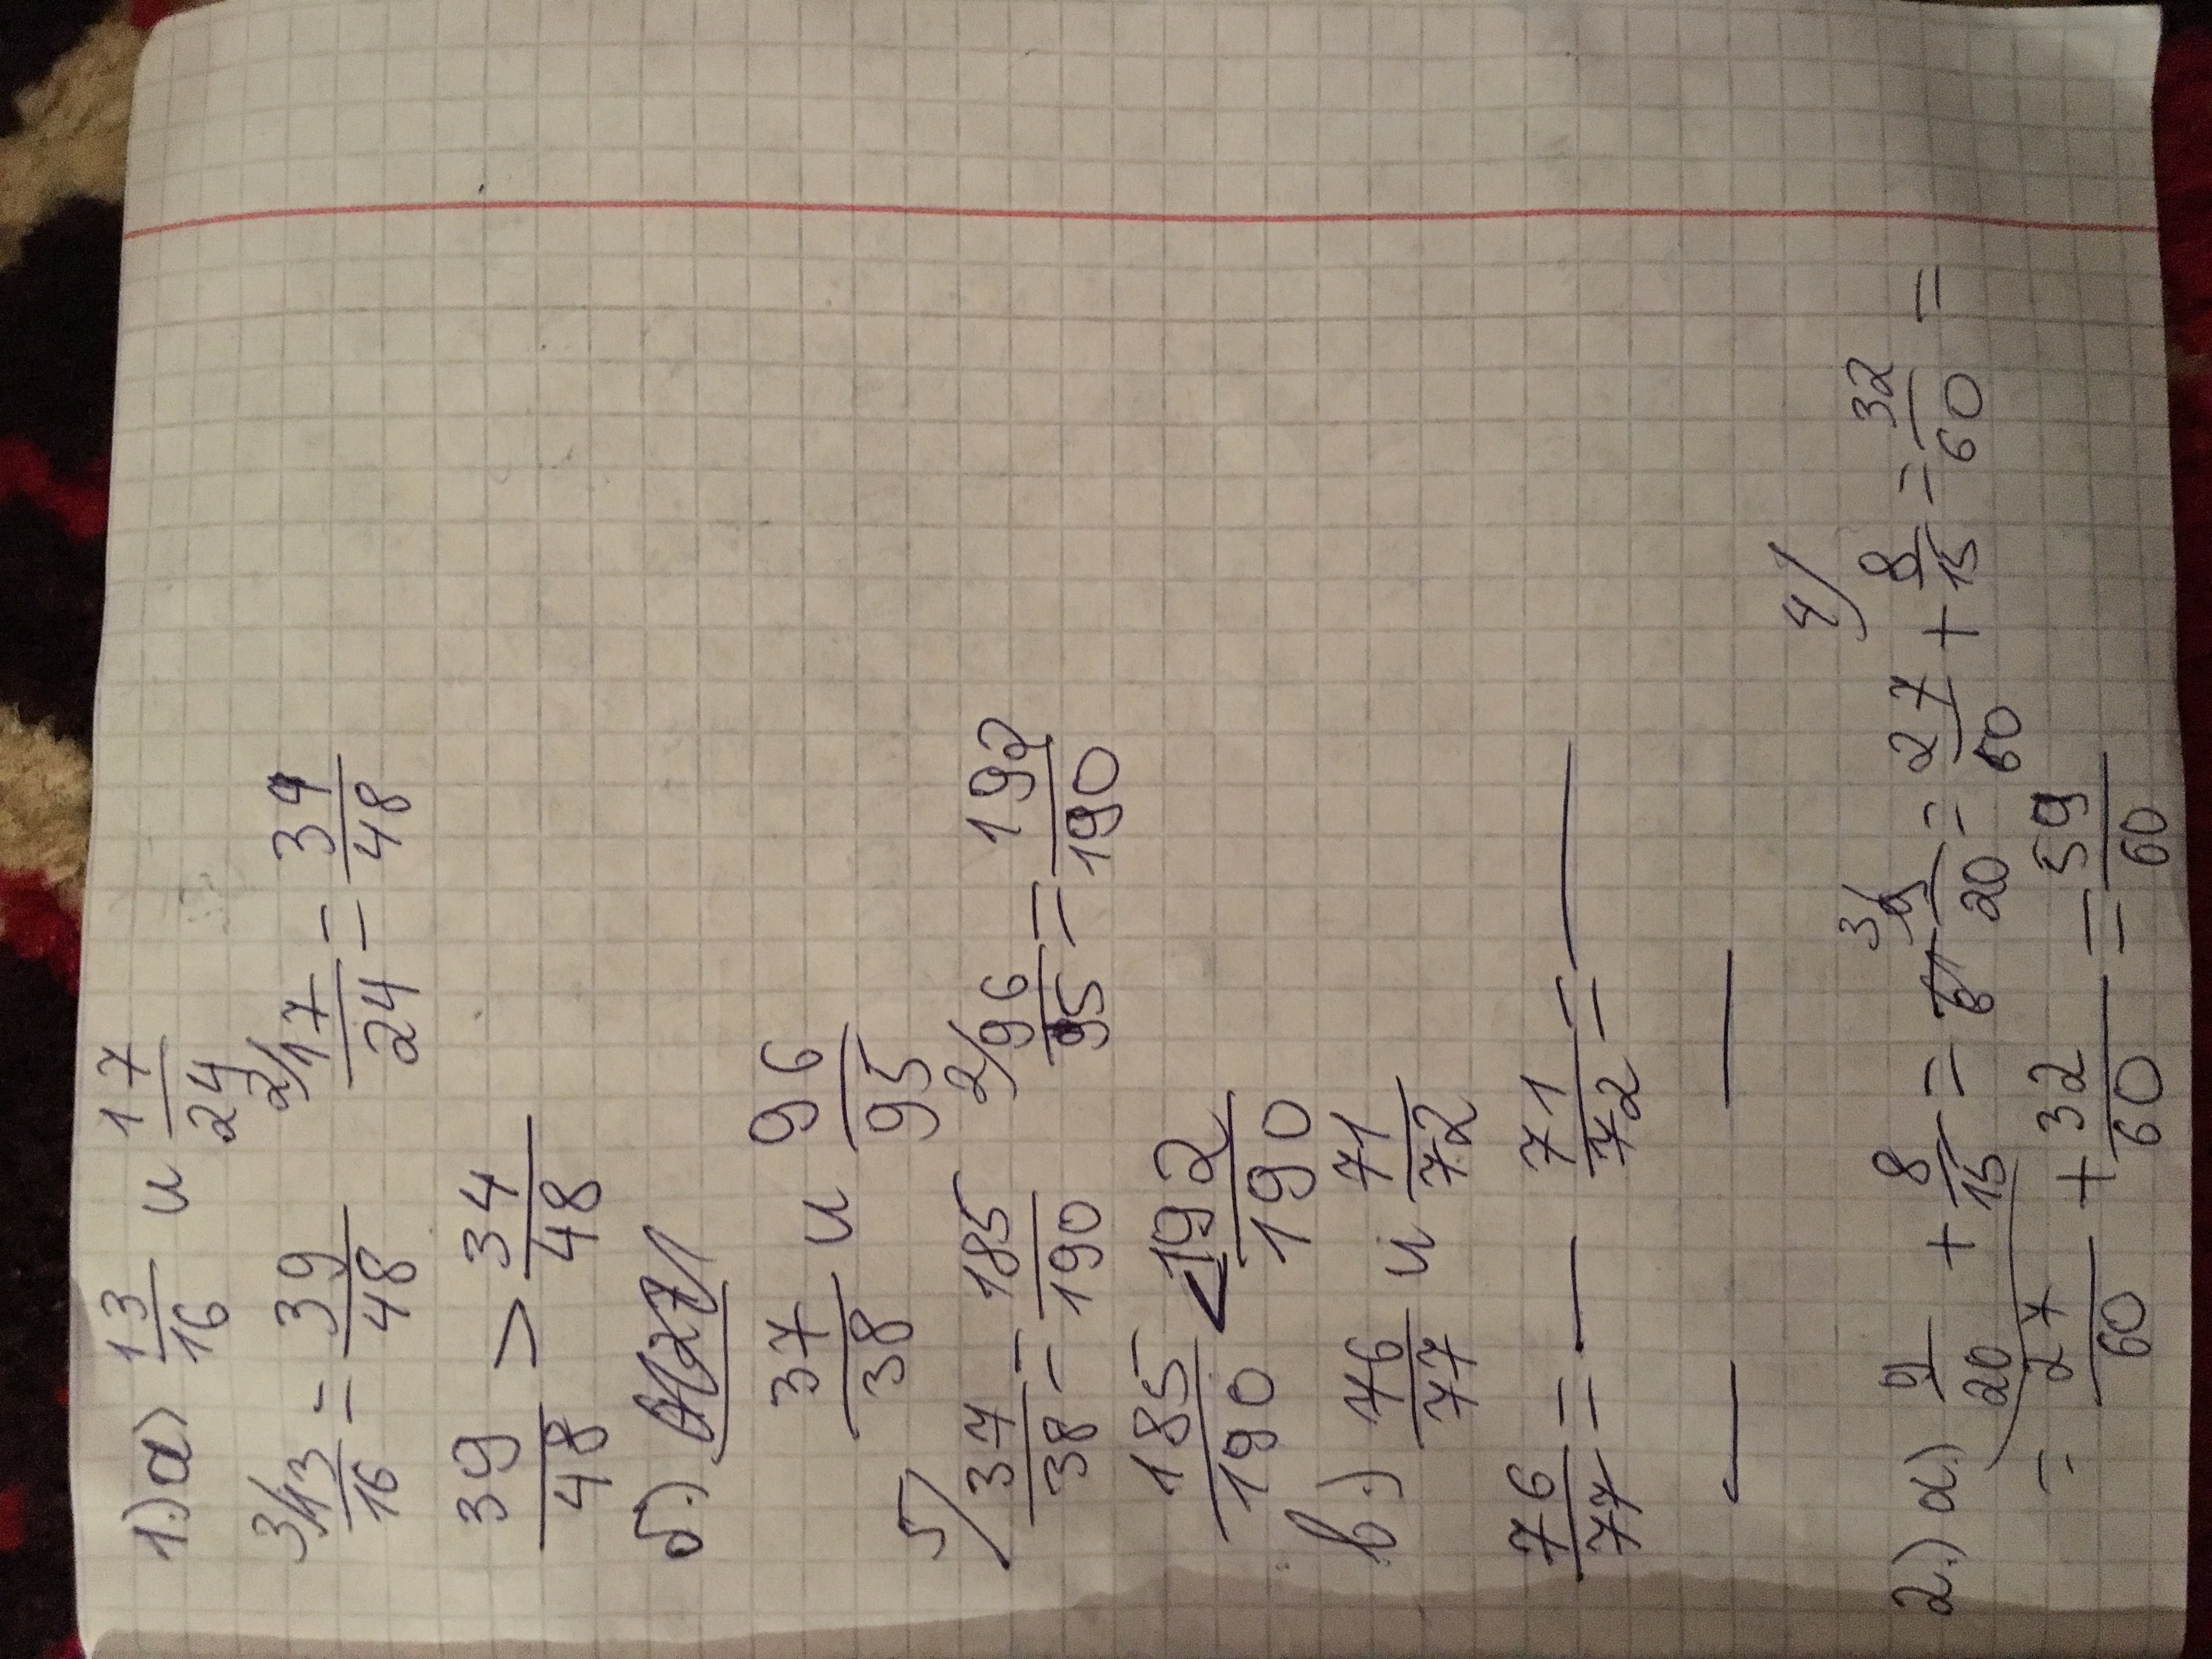 1.) а) 13/16 и 17/24
3/ 13/16 = 39/48 2/ 17/24 = 34/48
39/48 > 34/48
б.)
37/38 и 96/95
5/ 37/38 = 185/190 2/ 96/95 = 192/190
185/190 < 192/190
в.) 76/77 и 71/72
76/77 = — 71/72 = —
— —
2.) а) 9/20 + 8/15 = 3/ 9/20 = 27/60 + 4/ 8/15 = 32/60 =
= 27/60 + 32/60 = 59/60